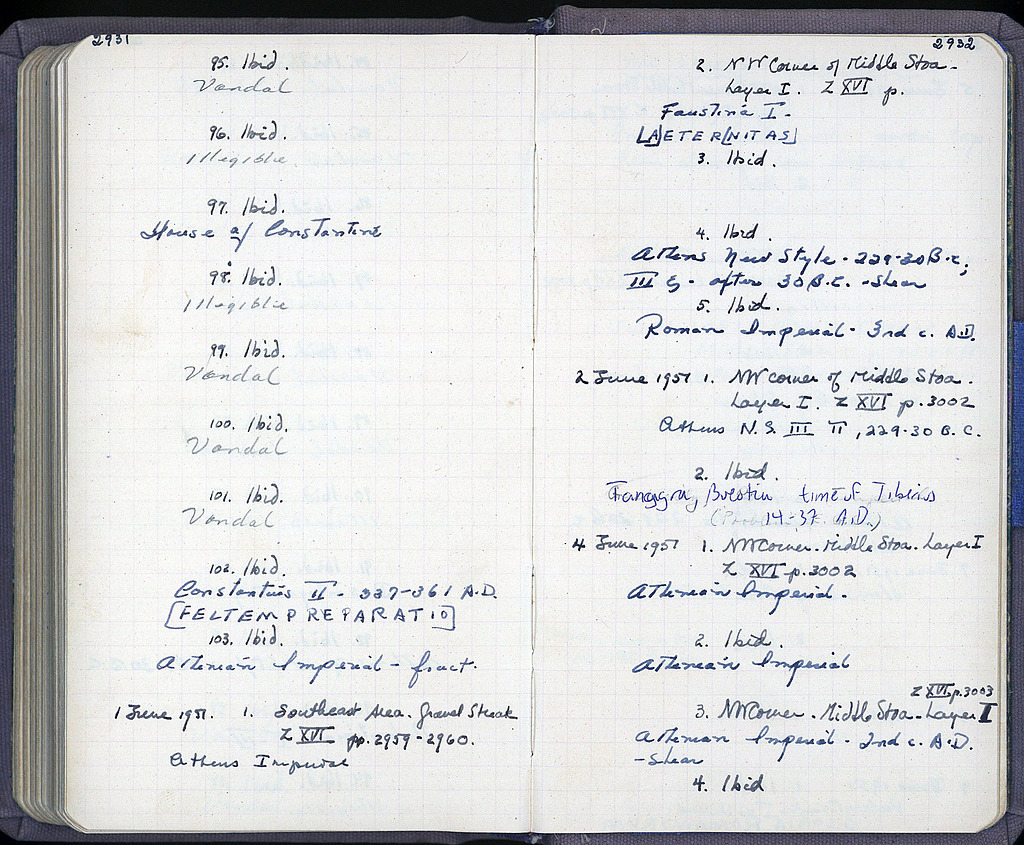 2931
95. Ibid.
Vandal
96. Ibid.
Illegible
97. Ibid.
House of Constantine
98. Ibid.
Illegible
99. Ibid.
Vandal
100. Ibid.
Vandal
101. Ibid.
Vandal
102. Ibid.
Constantius II - 337-361 A.D.
[FELTEMPREPARATIO]
103. Ibid.
Athenian Imperial - fract.
1 June 1951. 1. Southeast Area. Gravel Streak
Z XVI pp. 2959-2960.
Athens Imperial
2932
2. NW Corner of Middle Stoa -
Layer I. Z XVI p.
Faustina I -
[A]ETER[NITAS]
3. Ibid.
4. Ibid.
Athens New Style - 229-30 B.C.;
III - after 30 B.C. - Shear
5. Ibid.
Roman Imperial - 3rd c. A.D.
2 June 1951 1. NW corner of Middle Stoa.
Layer I. Z XVI p. 3002
Athens N.S. III II, 229-30 B.C.
2. Ibid.
Tanagra, Boeotia time of Tiberius
14-37 A.D.)
4 June 1951 1. NW Corner. Middle Stoa. Layer I
Z XVI p. 3002
Athenian Imperial.
2. Ibid.
Athenian Imperial
Z XVI p. 3003
3. NW Corner. Middle Stoa. Layer II
Athenian Imperial - 2nd c. A.D.
- Shear
4. Ibid